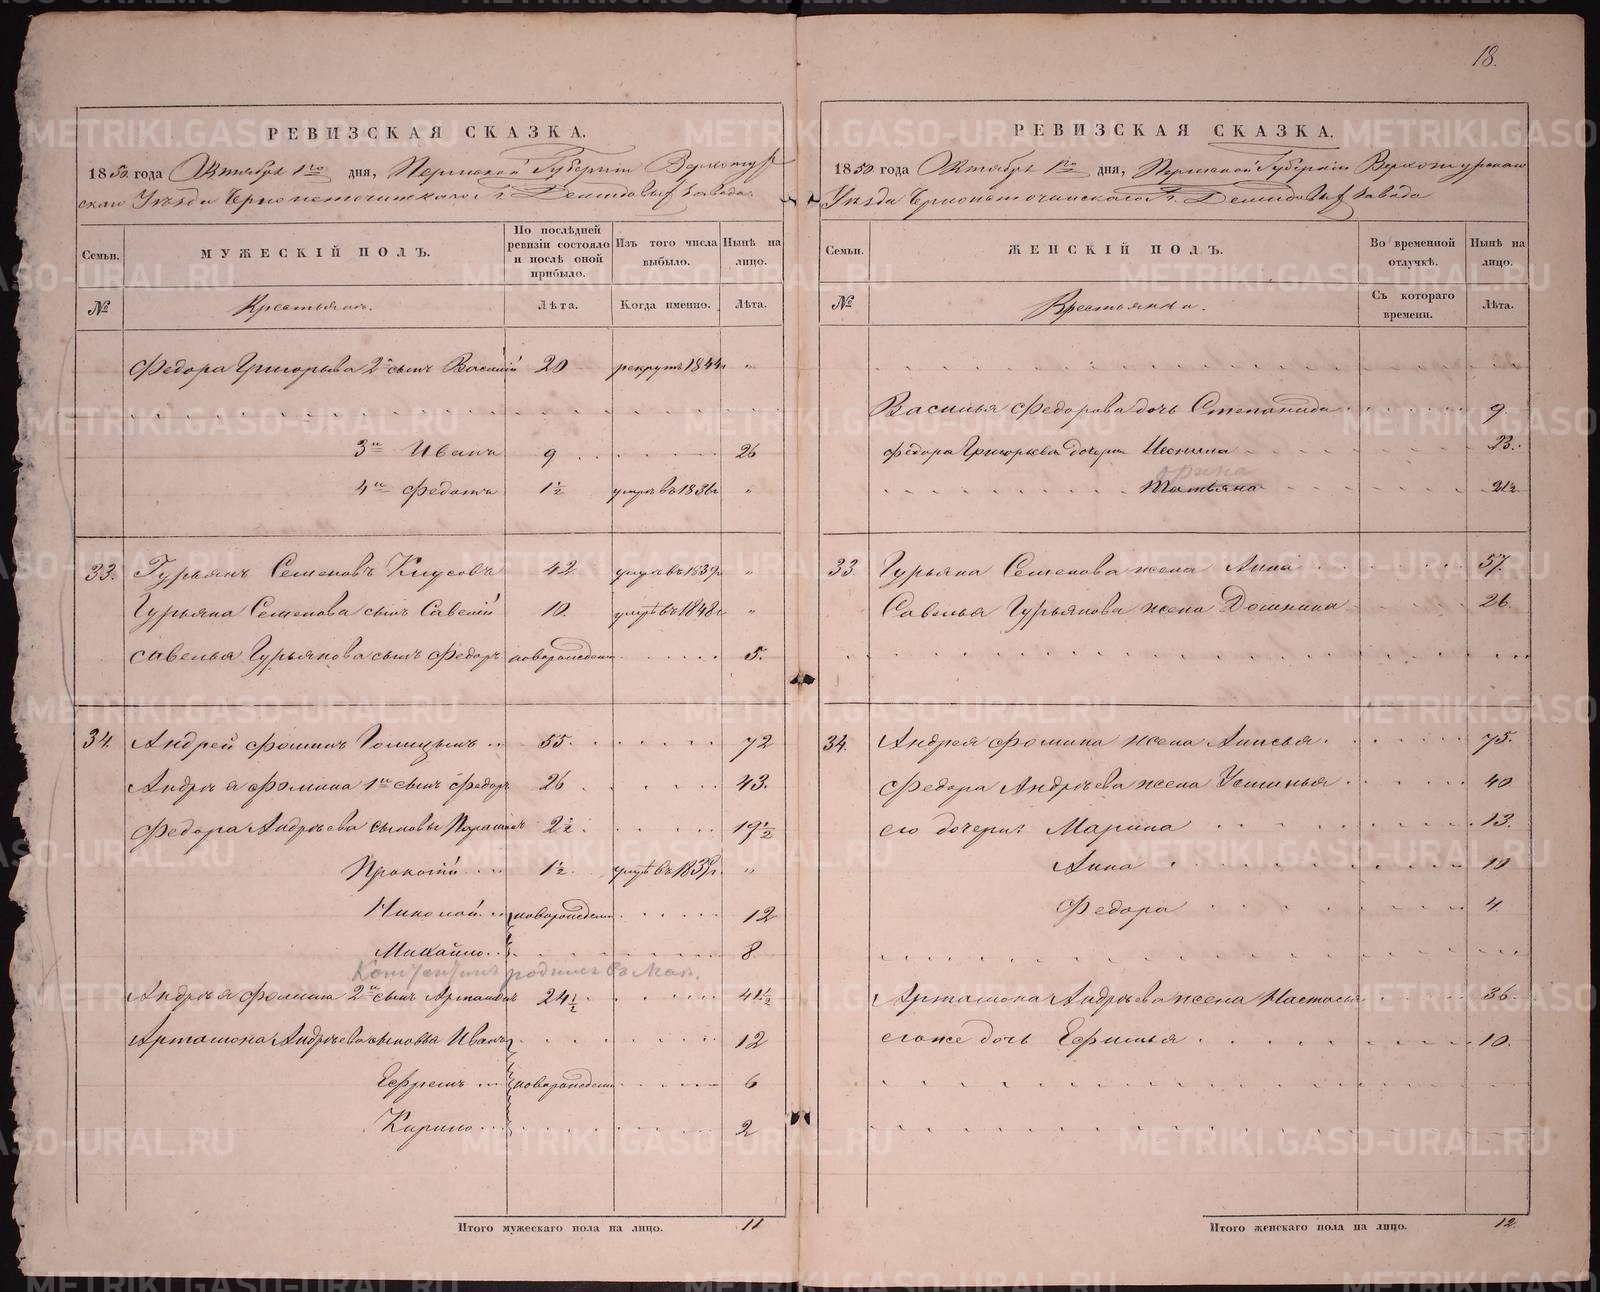 18.
РЕВИЗСКАЯ СКАЗКА.
1850 года Октября 1го дня, Пермской Губернiи Верхотур
скаго Уѣзда Черноисточинскаго Г. Демидовыхъ завода.
Семьи. МУЖЕСКIЙ ПОЛЪ. По послѣдней ревизiи состояло и послѣ оной прибыло. Изъ того числа выбыло. Нынѣ на лицо.
№ Крестьянъ. Лѣта. Когда именно. Лѣта.
Федора Григорьева 2й сынъ Василiй 20 рекрутъ 1844 "
3й Иванъ 9 26
4й Федотъ 1½ умре въ 1836 "
33. Гурьянъ Семеновъ 42 умре въ 1839 "
Гурьяна Семенова сынъ Савелiй 10. умре въ 1848 "
Савелья Гурьянова сынъ Федоръ новорожденъ 5.
34. Андрей Фоминъ Голицынъ 55. 72
Андрѣя Фомина 1й сынъ Федоръ 26 43.
Федора Андрѣева сыновья 2½ 19½
Прокопiй 1½ умре въ "
Николай новорожденъ 12
Михайло 8
родился
Андрѣя Фомина 2й сынъ Артамонъ 24½ 41½
Артамона Андрѣева сыновья Иванъ 12
Ефремъ новорожденъ 6
Кирило 2
Итого мужескаго пола на лицо. 11
РЕВИЗСКАЯ СКАЗКА.
1850 года Октября 1го дня, Пермской Губернiи Верхотурскаго
Уѣзда Черноисточинскаго Г. Демидовыхъ завода
Семьи. ЖЕНСКIЙ ПОЛЪ. Во временной отлучкѣ. Нынѣ на лицо.
№ Крестьянки. Съ котораго времени. Лѣта.
Василья Федорова дочь Степанида 9
Федора Григорьева дочери 23.
Арина
Татьяна 21½
33 Гурьяна Семенова жена Анна 57.
Савелья Гурьянова жена Домнина 26.
34. Андрея Фомина жена Анисья 75.
Федора Андрѣева жена Устинья 40
его дочери: Марина 13.
Анна 10
Федора 4
Артамона Андрѣева жена Настасья 36.
его же дочь Ефимья 10.
Итого женскаго пола на лицо. 12.
METRIKI.GASO-URAL.RU